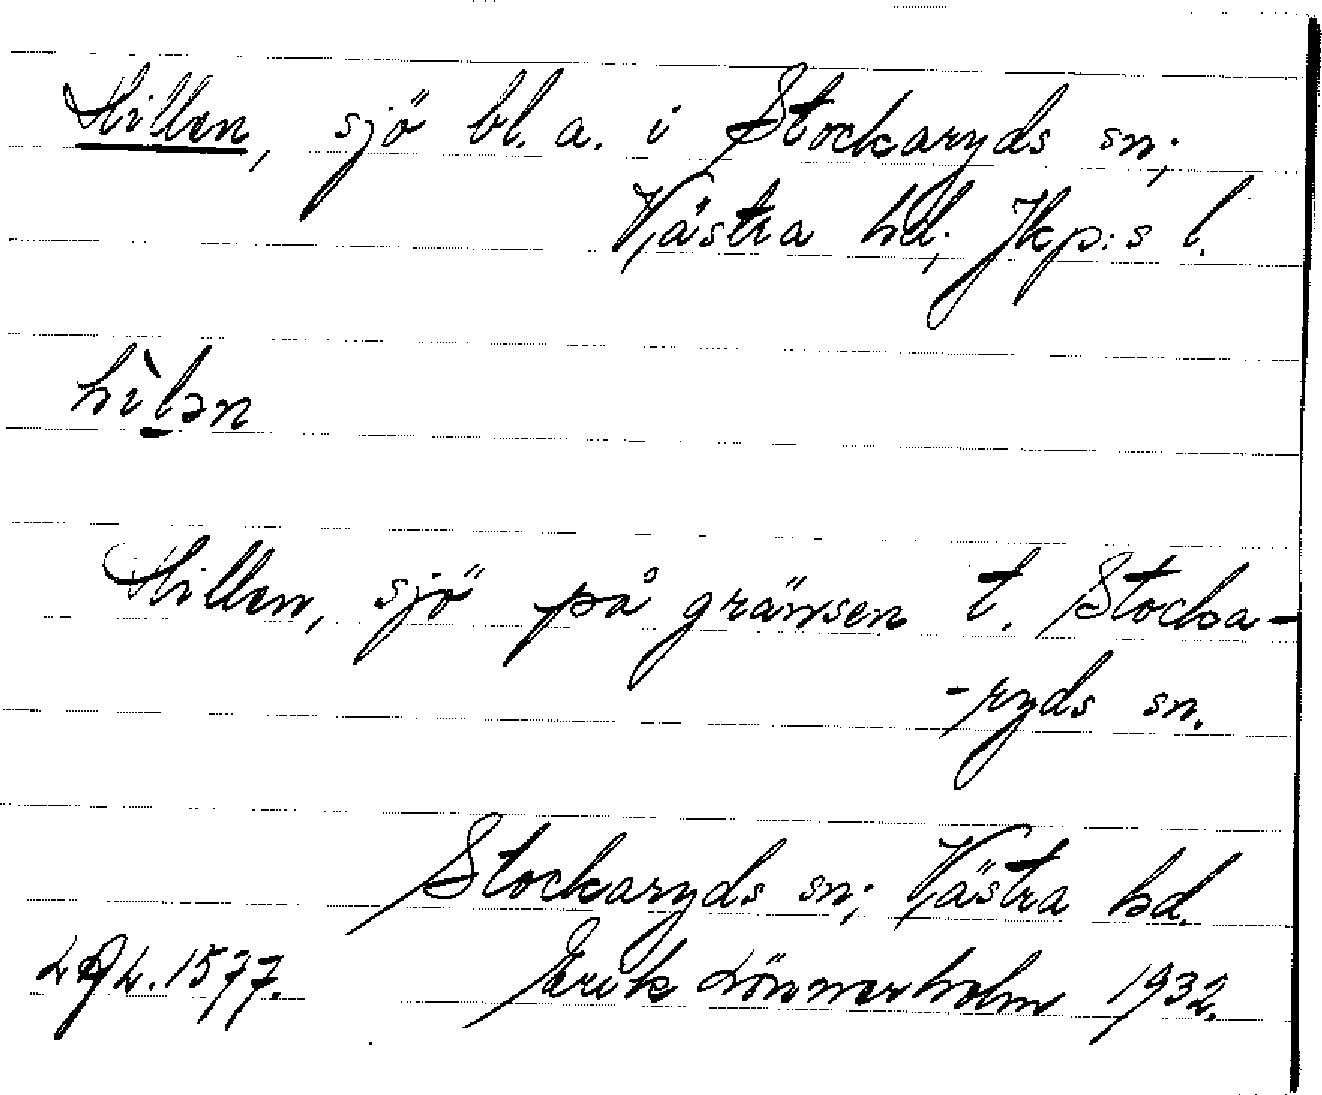 Hillen, sjö bl. a. i Stockaryds sn;
Västra hd; Jkp:s l.
hìlən
Hillen, sjö på gränsen t. Stocka-
-ryds sn.
Stockaryds sn; Västra hd.
Erik Lönnerholm 1932.
1577.